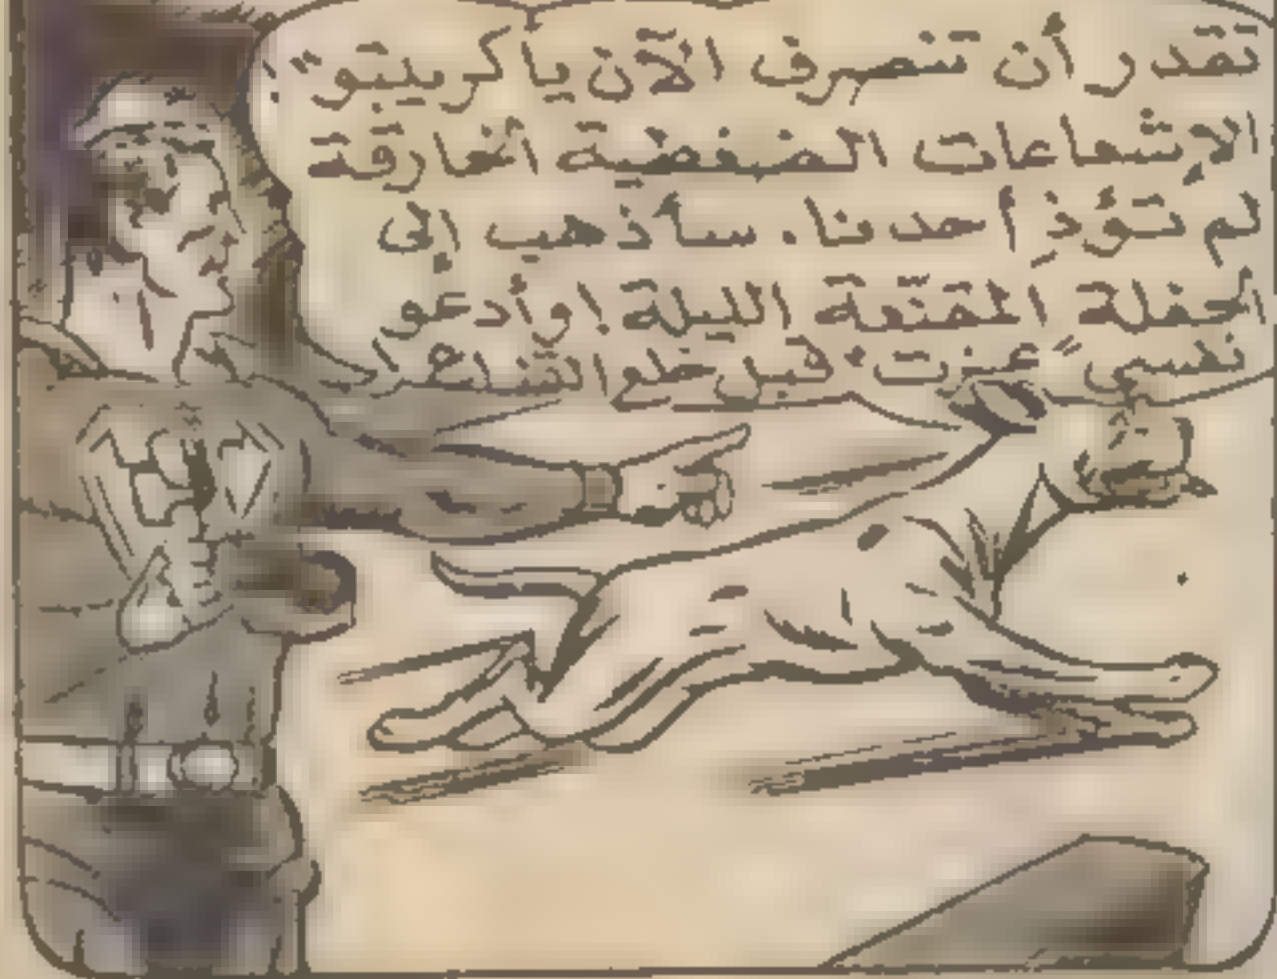 تقدر أن تنصرف الآن يا كريبتو"
الإشعاعات الضغطية الخارقة
لم تؤذِ أحدنا. سأذهب إلى
الحفلة المقنّعة الليلة! وأدعو
نفسي "عزت" قبل خلع القناع!